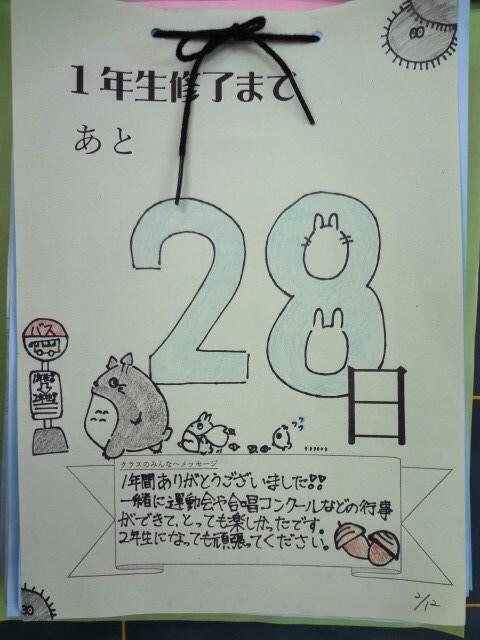 1年生修了まで
あと
28
日
バス
クラスのみんなへメッセージ
1年間ありがとうございました!!
一緒に運動会や合唱コンクールなどの行事
ができて、とっても楽しかったです。
2年生になっても頑張ってください。
2/12